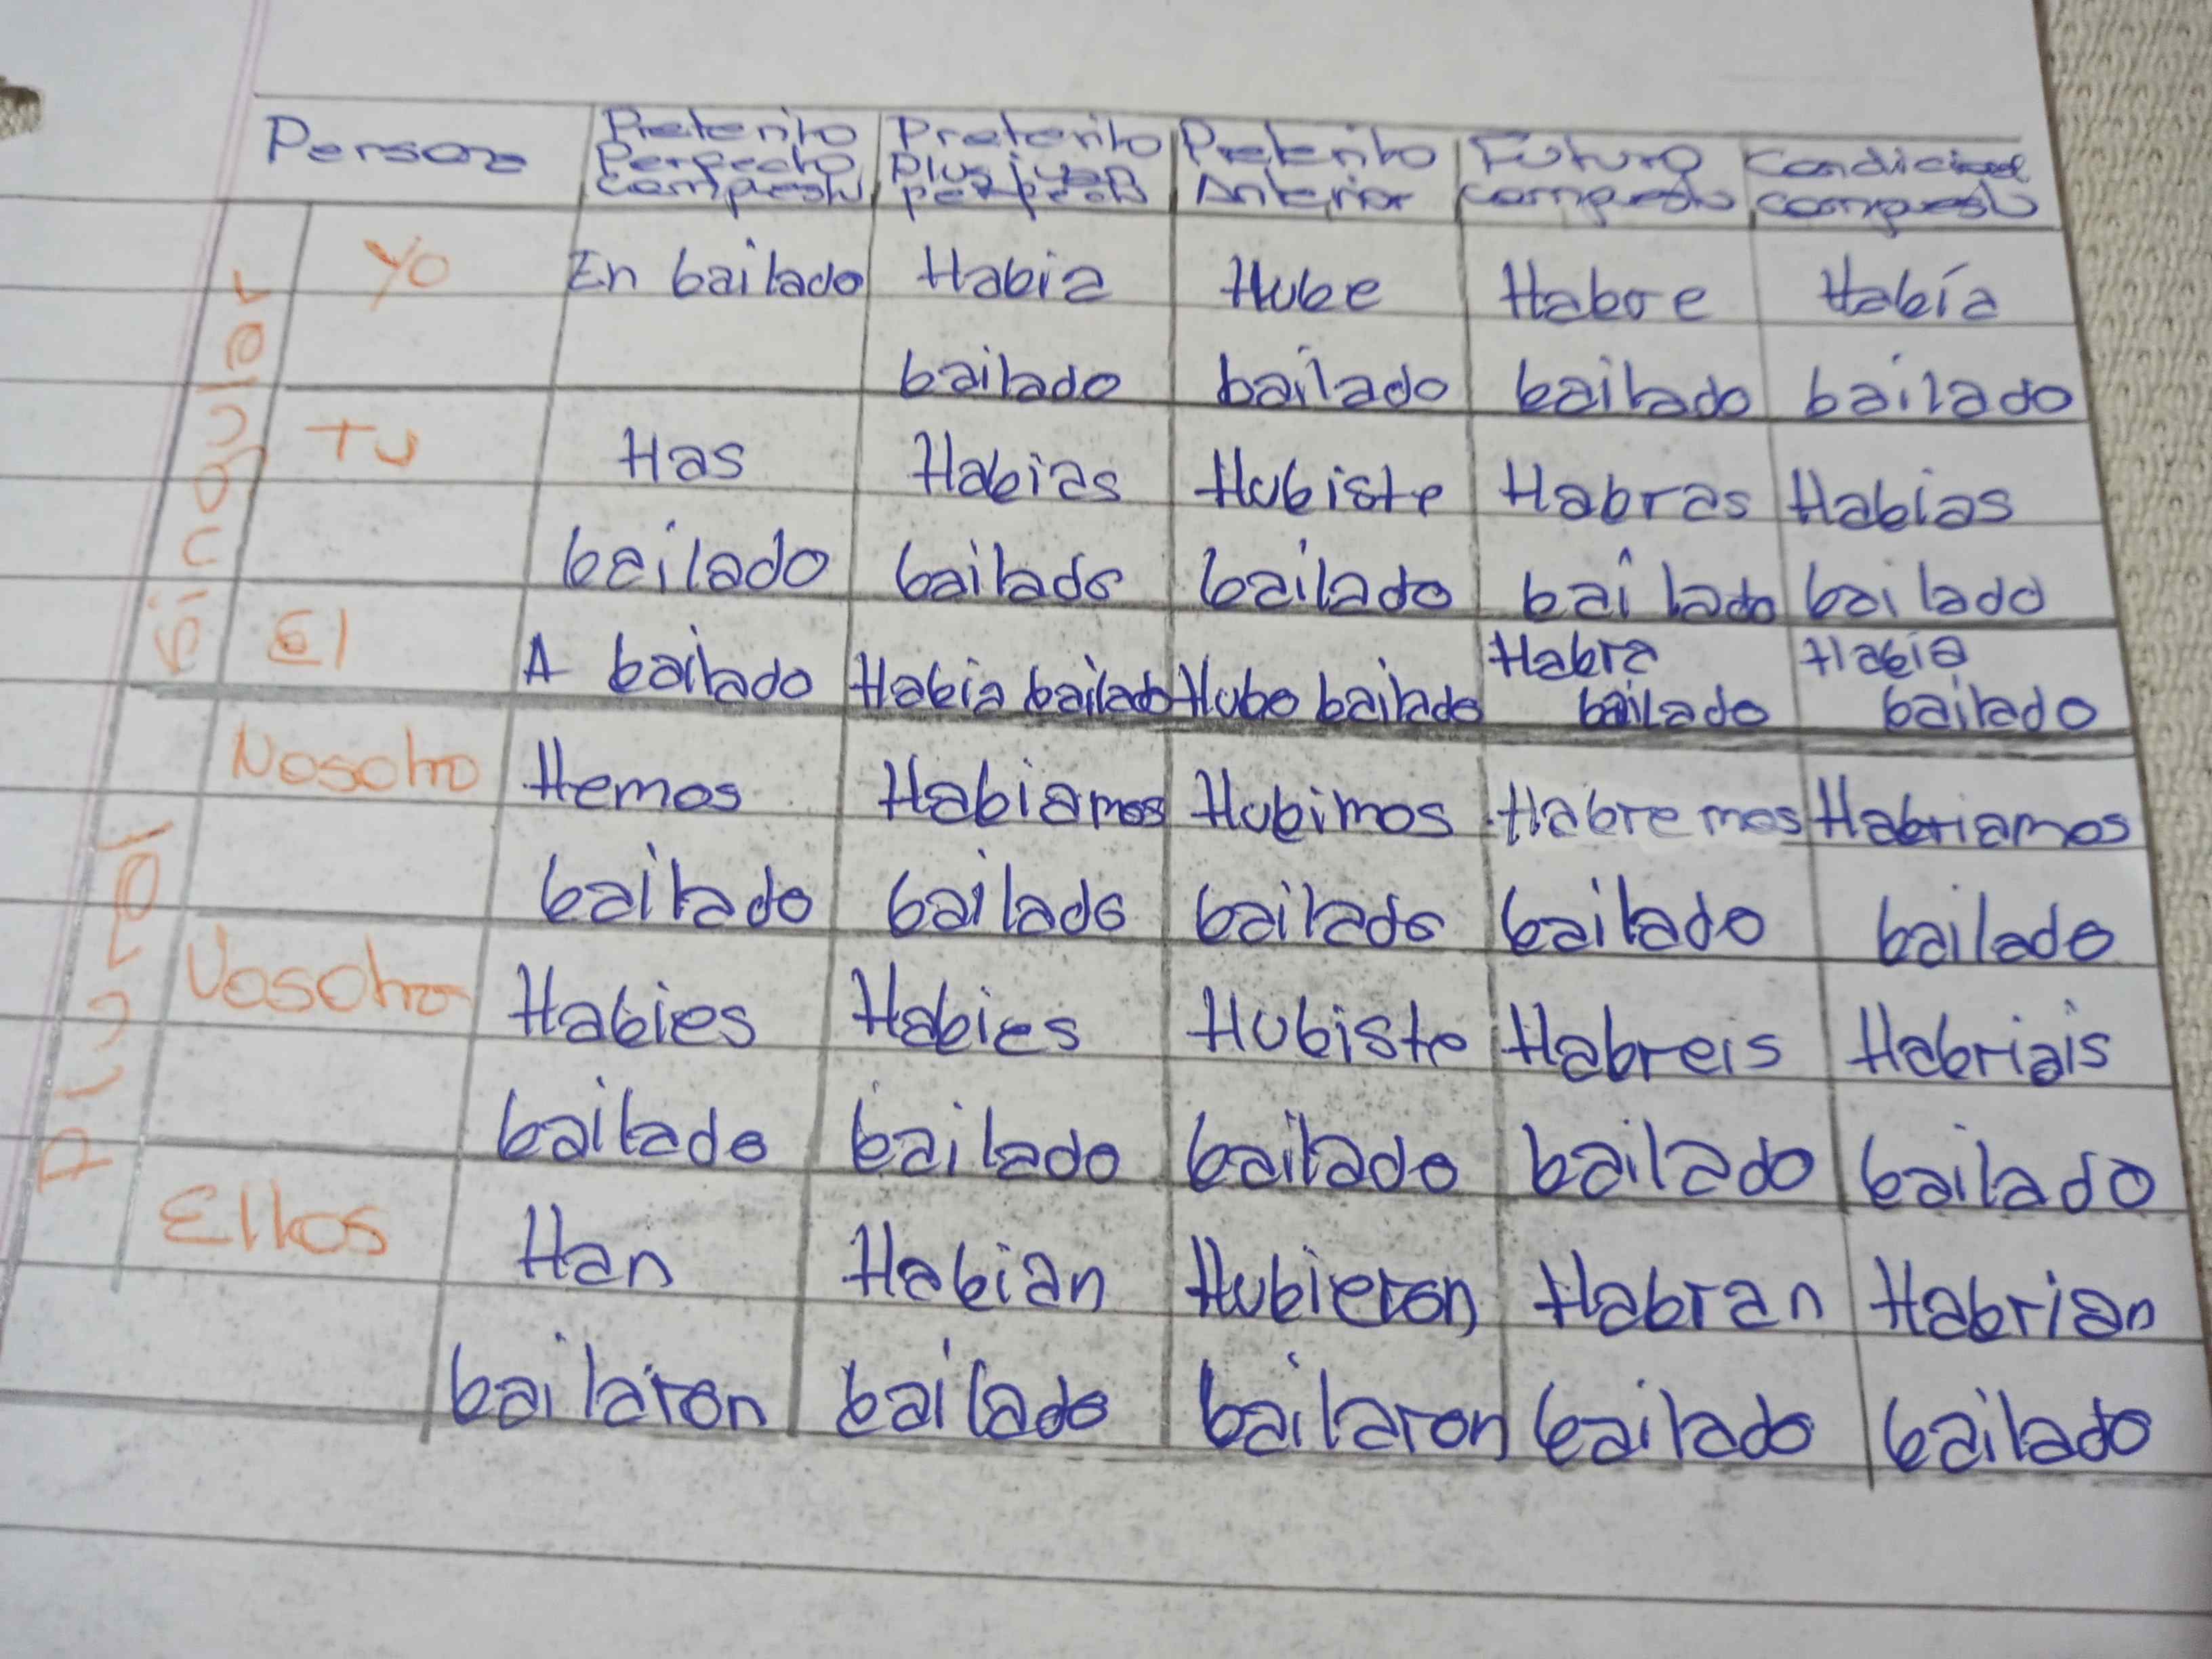 Persona Preterito Perfecto compesto Preterito Plusjuan perfecto Preterito Anterior Futuro compesto Condicional compesto
Singular
Yo En bailado Habia Hube Habre Había
bailado bailado bailado bailado
Tu Has Habias Hubiste Habras Habias
bailado bailado bailado bailado bailado
El A bailado Habia bailado Hubo bailado Habra bailado Habia bailado
Plural
Nosotro Hemos Habiamos Hubimos Habremos Habriamos
bailado bailado bailado bailado bailado
Vosotro Habies Habies Hubiste Habreis Habriais
bailado bailado bailado bailado bailado
Ellos Han Habian Hubieron Habran Habrian
bailaron bailado bailaron bailado bailado